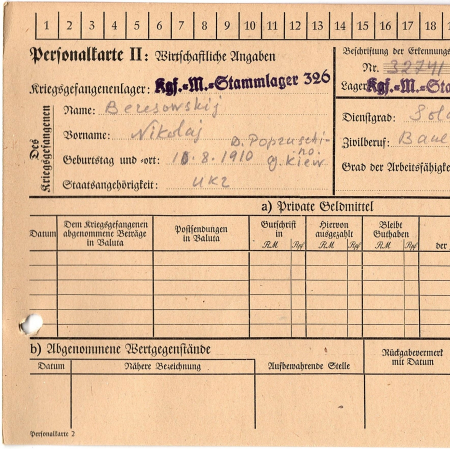 1 2 3 4 5 6 7 8 9 10 11 12 13 14 15 16 17 18
Personalkarte II: Wirtschaftliche Angaben
Kriegsgefangenenlager: Kgf.-M.-Stammlager 326
Beschriftung der Erkennungs
Nr. 32741
Lager Kgf.-M.-Sta
Des Kriegsgefangenen
Name: Beresowskij
Vorname: Nikolaj
Geburtstag und -ort: 10.8.1910 D. Popruschi-
no. G. Kiew
Staatsangehörigkeit: ukr
Dienstgrad: Sold
Zivilberuf: Baue
Grad der Arbeitsfähigke
a) Private Geldmittel
Datum
Dem Kriegsgefangenen
abgenommene Beträge
in Valuta
Postsendungen
in Valuta
Gutschrift
in
RM Rpf
Hiervon
ausgezahlt
RM Rpf
Bleibt
Guthaben
RM Rpf
der
b) Abgenommene Wertgegenstände
Datum
Nähere Bezeichnung
Aufbewahrende Stelle
Rückgabevermerk
mit Datum
Personalkarte 2